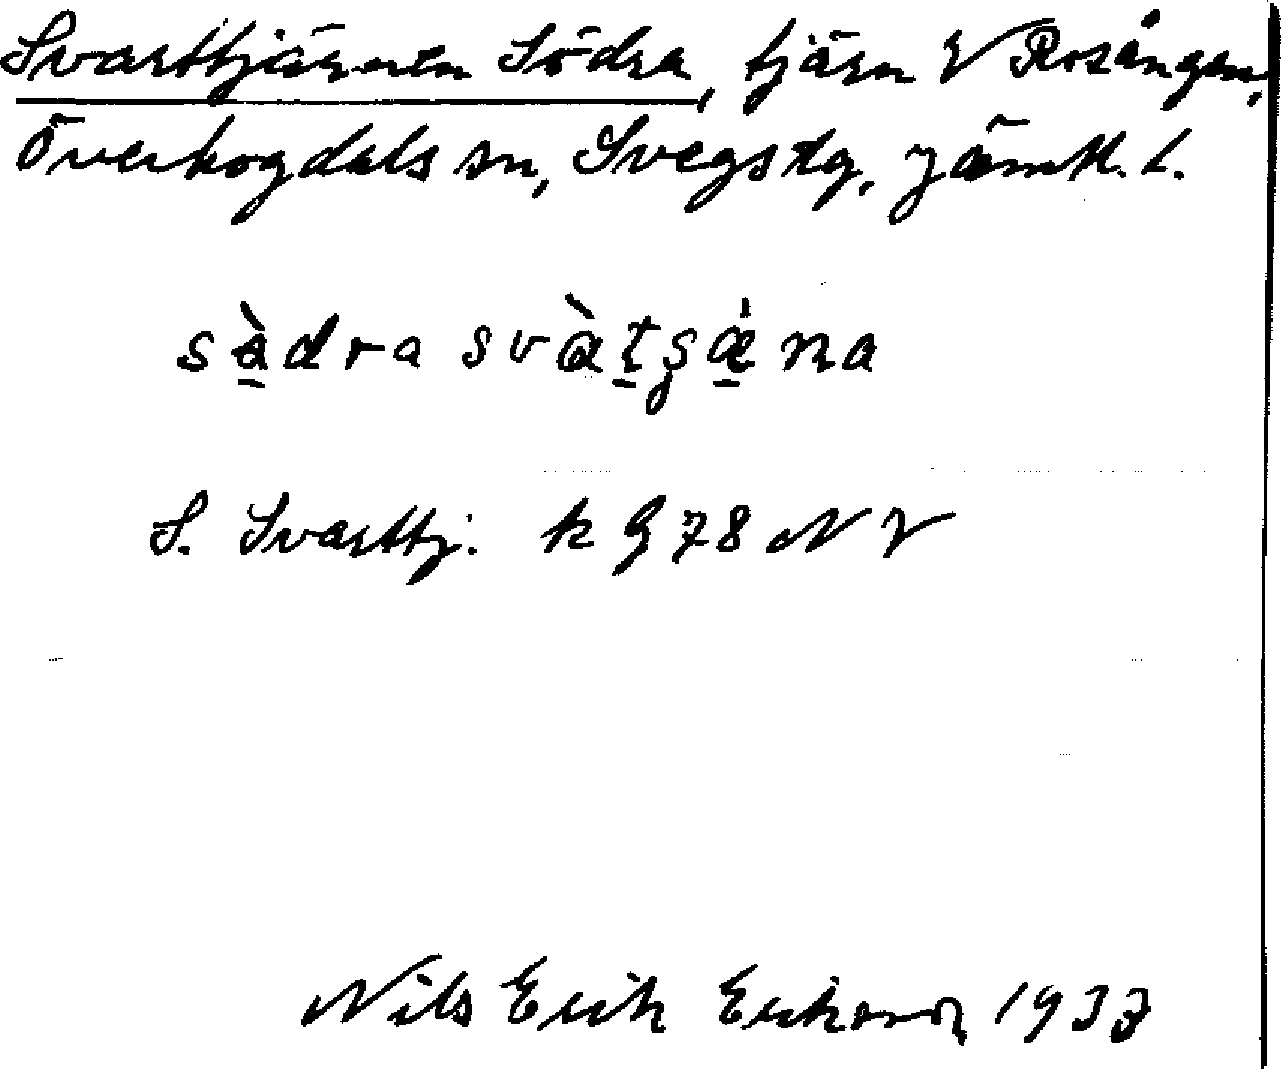 Svarttjärnen Södra, tjärn V Rosången,
Överhogdals sn, Svegs tg, Jämtl. l.
sàdra svàtşǽna
S. Svarttj. k G 78 NV
Nils Erik Erikson 1933